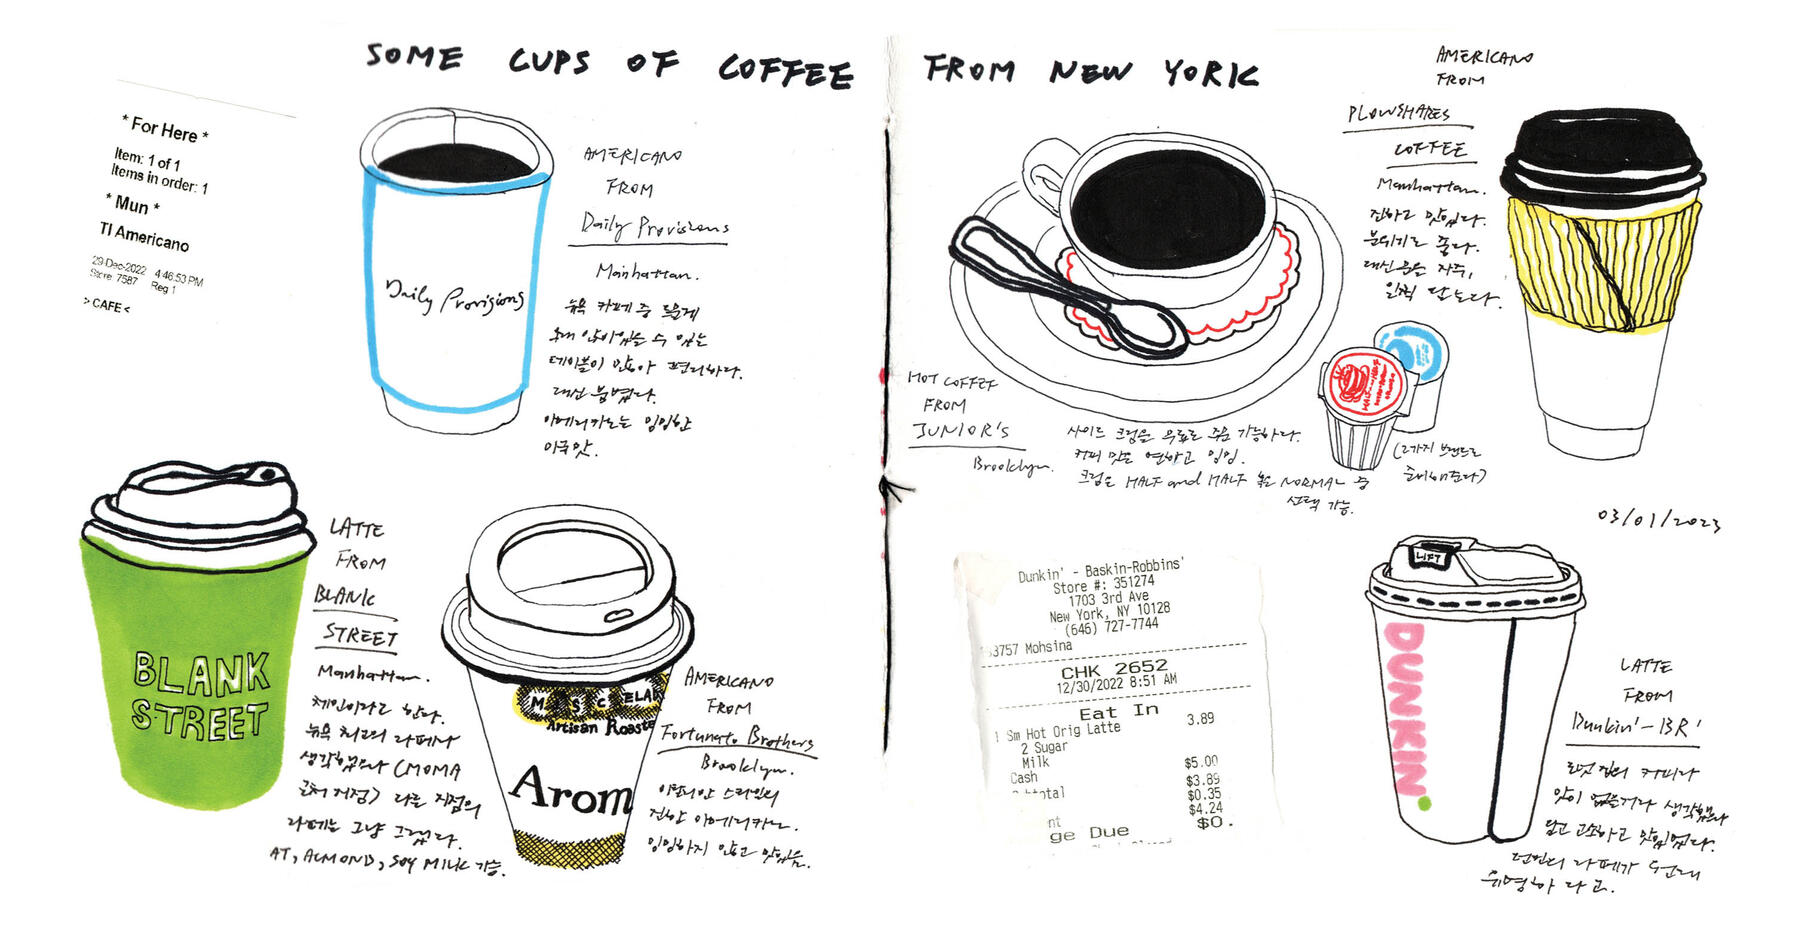 SOME CUPS OF COFFEE FROM NEW YORK
* For Here *
Item: 1 of 1
Items in order: 1
* Mun *
TI Americano
29-Dec-2022 4:46:53 PM
Store: 7587 Reg 1
> CAFE <
Daily Provisions
AMERICANO
FROM
Daily Provisions
Manhattan.
뉴욕 카페 중 드물게
오래 앉아있을 수 있는
테이블이 많아 편리하다.
대신 붐볐다.
아메리카노는 밍밍한
미국맛.
BLANK
STREET
LATTE
FROM
BLANK
STREET
Manhattan.
체인이라고 한다.
뉴욕 최고의 라떼라
생각했으나 (MOMA
근처 지점) 다른 지점의
라떼는 그냥 그랬다.
AT, ALMOND, SOY MILK 가능.
MISCELA
Artisan Roaste
Arom
AMERICANO
FROM
Fortunato Brothers
Brooklyn.
이탈리안 스타일의
진한 아메리카노.
밍밍하지 않고 맛있음.
HOT COFFEE
FROM
JUNIOR'S
Brooklyn.
사이드 크림은 무료로 주문 가능하다.
커피 맛은 연하고 밍밍.
크림은 HALF and HALF 혹은 NORMAL 중
선택 가능.
(2가지 브랜드로
준비해준다)
AMERICANO
FROM
PLOWSHARES
COFFEE
Manhattan.
진하고 맛있다.
분위기도 좋다.
대신 문을 자주,
일찍 닫는다.
03/01/2023
Dunkin' - Baskin-Robbins'
Store #: 351274
1703 3rd Ave
New York, NY 10128
(646) 727-7744
3757 Mohsina
CHK 2652
12/30/2022 8:51 AM
Eat In
1 Sm Hot Orig Latte 3.89
2 Sugar
Milk
Cash $5.00
$3.89
$0.35
$4.24
ge Due $0.
LIFT
DUNKIN'
LATTE
FROM
Dunkin'-BR'
도넛 집의 커피라
맛이 없을거라 생각했으나
달고 고소하고 맛있었다.
던킨의 라떼가 원래
유명하다고.